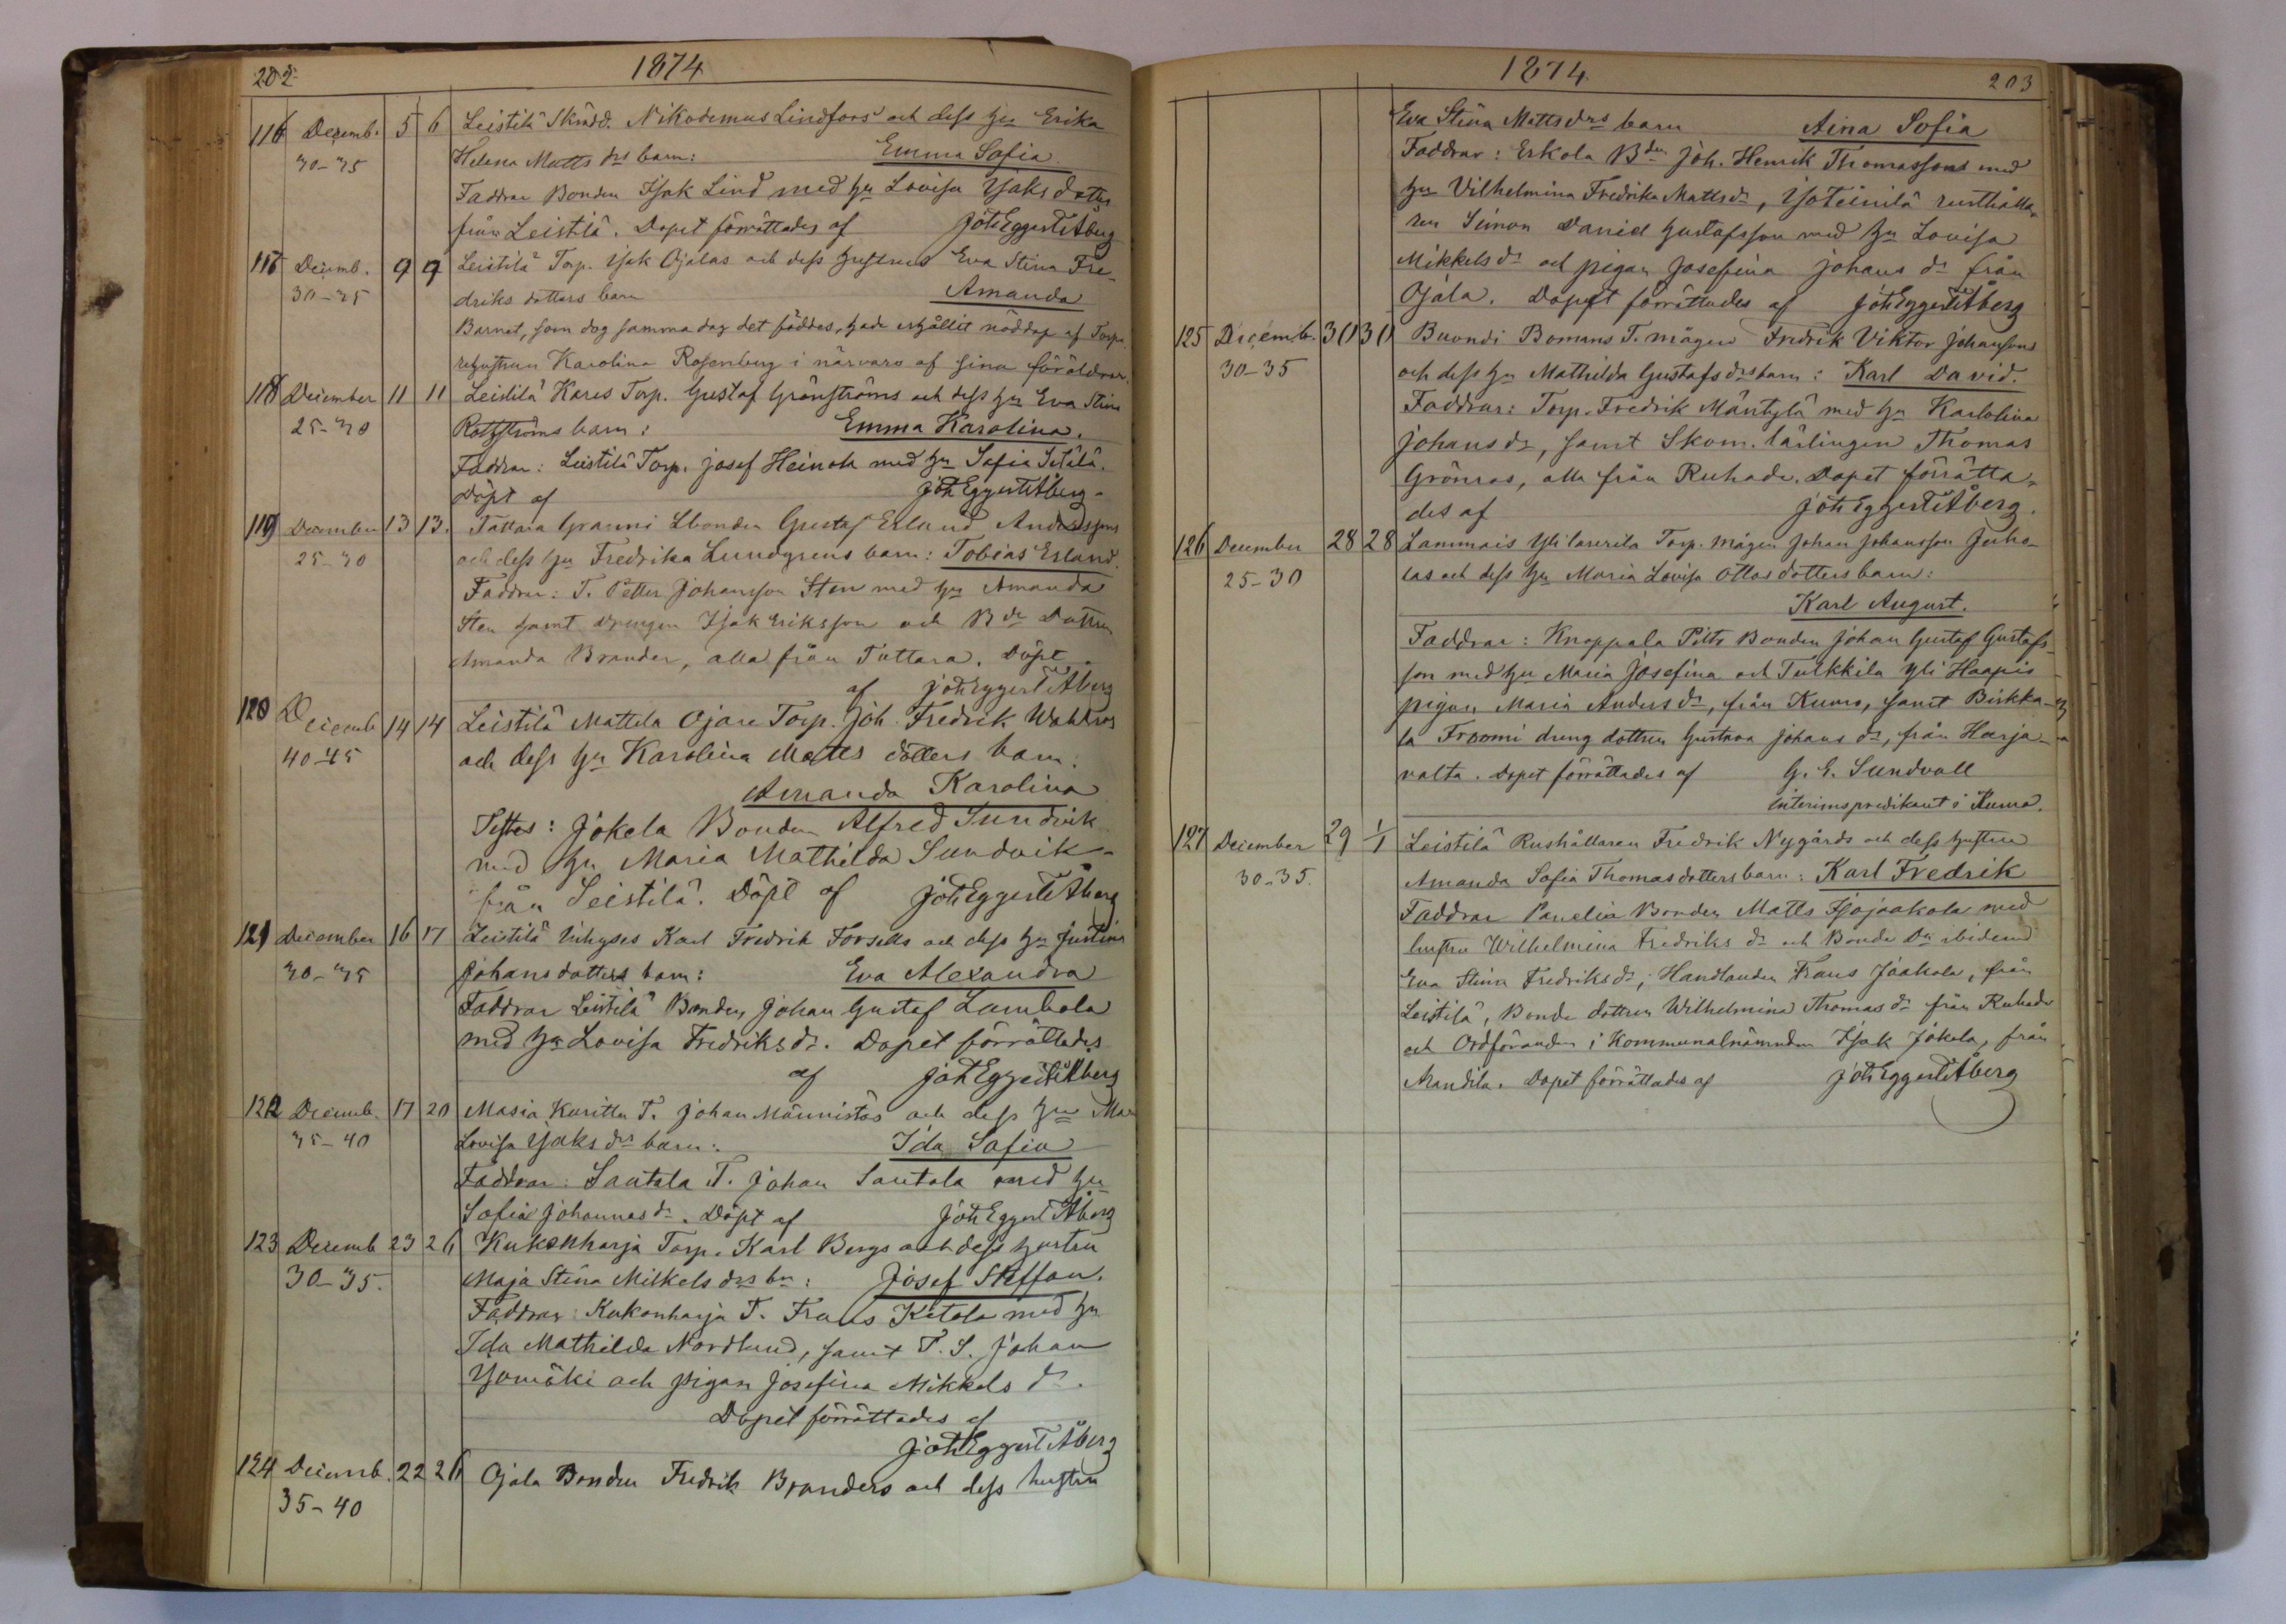 202
1874
116 Decemb. 5 6 Leistilä Skrädd. Nikodemus Lindfors och dess hu Erika
30-35 Helena Matts drs barn: Emma Sofia.
Faddrar Bonden Isak Lind med hu Lovisa Isaks dotter
från Leistilä. Dopet förrättades af Joh Eggert Åberg
117 Decemb. 9 9 Leistilä Torp. Isak Ojalas och dess hustrus Eva Stina Fre-
30-35 driks dotters barn Amanda
Barnet, som dog samma dag det föddes, hade erhållit nöddop af Torpa-
rehustrun Karolina Rosenberg i närvaro af sina föräldrar.
118 December 11 11 Leistilä Kares Torp. Gustaf Grönströms och dess hu Eva Stina
25-30 barn: Emma Karolina.
Faddrar: Leistilä Torp. Josef Heinola med hu Sofia
Döpt af Joh Eggert Åberg.
119 December 13 13. Tattara Granni Lbonden Gustaf Erland Anderssons
25-30 och dess hu Fredrika Lundgrens barn: Tobias Erland.
Faddrar: T. Petter Johansson Sten med hu Amanda
Sten samt drengen Isak Eriksson och Bde Dottren
Amanda Brander, alla från Tattara. Döpt
af Joh Eggert Åberg
120 Decemb 14 14 Leistilä Mattila Ojare Torp. Joh. Fredrik Wahlros
40-45 och dess hu Karolina Matts dotters barn:
Amanda Karolina
Testes: Jokela Bonden Alfred Sundvik
med hu Maria Mathilda Sundvik
från Leistilä. Döpt af Joh Eggert Åberg
121 December 16 17 Leistilä Inhyses Karl Fredrik Forsells och dess hu Justina
30-35 Johansdotters barn: Eva Alexandra
Faddrar Leistilä Bonden Johan Gustaf Lambola
med hu Lovisa Fredriks dr. Dopet förrättades
af Joh Eggert Åberg
122 Decemb. 17 20 Masia Karitta T. Johan Männistös och dess hu Maria
35-40 Lovisa Isaks drs barn: Ida Sofia
Faddrar: Sautala T. Johan Sautala med hu
Sofia Johannes dr. Döpt af Joh Eggert Åberg
123 Decemb 23 26 Kukonharja Torp. Karl Bergs och dess hustru
30-35. Maja Stina Mikkels drs bn: Josef Steffan.
Faddrar: Kukonharja T. Frans Ketola med hu
Ida Mathilda Nordlund, samt T. S. Johan
Isomäki och pigan Josefina Mikkels dr.
Dopet förrättades af
Joh Eggert Åberg
124 Decemb. 22 26 Ojala Bonden Fredrik Branders och dess hustru
35-40
1874
203
Eva Stina Matts drs barn Aina Sofia
Faddrar: Erkola Bden Joh. Henrik Thomassons med
hu Vilhelmina Fredrika Matts dr, Isoteinilä rusthålla-
ren Simon David Gustafsson med hu Lovisa
Mikkels dr och pigan Josefina Johans dr från
Ojala. Dopet förrättades af Joh Eggert Åberg
125 Decemb. 30 30 Buondi Bomans T. mågen Fredrik Viktor Johanssons
30-35 och dess hu Mathilda Gustafs drs barn: Karl David.
Faddrar: Torp. Fredrik Mäntylä med hu Karolina
Johans dr, samt Skom. lärlingen Thomas
Grönros, alla från Ruhade. Dopet förrätta-
des af Joh Eggert Åberg.
126 December 28 28 Lammais Torp. mågen Johan Johansson Juho-
25-30 las och dess hu Maria Lovisa Ottos dotters barn:
Karl August.
Faddrar: Knoppala Pitts Bonden Johan Gustaf Gustafs-
son med hu Maria Josefina och Tulkkila Yli Haapio
pigan Maria Anders dr, från Kumo, samt Pirkka-
la Froomi dreng dottren Gustava Johans dr, från Harja-
valta. Dopet förrättades af G. E. Sundvall
interimspredikant i Kumo.
127 December 29 1/1 Leistilä Rushållaren Fredrik Nygårds och dess hustru
30-35. Amanda Sofia Thomas dotters barn: Karl Fredrik
Faddrar Panelia Bonden Matts med
hustru Wilhelmina Fredriks dr och Bonde Dn ibidem
Eva Stina Fredriks dr; Handlanden Frans Jaakola, från
Leistilä, Bonde dottren Wilhelmina Thomas dr från Ruhade
och Ordföranden i Kommunalnämnden Isak Jokela, från
Arandila. Dopet förrättades af Joh Eggert Åberg